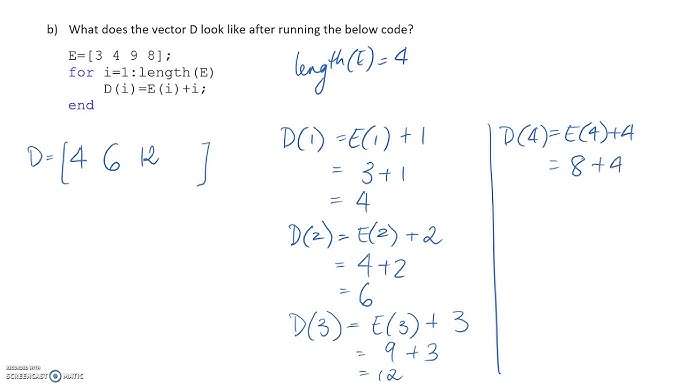 b) What does the vector D look like after running the below code?
E=[3 4 9 8];
for i=1:length(E)
D(i)=E(i)+i;
end
length(E)=4
D=[4 6 12 ]
D(1)=E(1)+1
= 3+1
= 4
D(2)=E(2)+2
= 4+2
= 6
D(3)=E(3)+3
= 9+3
=12
D(4)=E(4)+4
= 8+4
RECORDED WITH
SCREENCAST MATIC